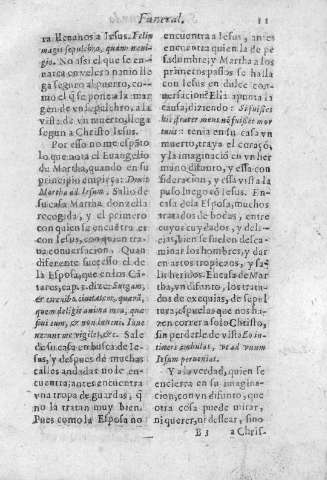 Funeral. 11
ra lleuanos a Iesus. Felix
magis sepulchro, quam
gio. No assi el que se en-
narca en velero nauio lle
ga seguro al puerto, co-
mo el q̃ se pone a la mar
gen de vn sepulchro, a la
vista de vn muerto, llega
seguro a Christo Iesus.
Por esso no me espãto
lo que nota el Euangelio
de Martha, quando en su
principio empieça: Venit
Martha ad Iesum, Salio de
su casa Martha donzella
recogida, y el primero
con quien la encuẽtra es
con Iesus, con quien tra-
ua conuersacion. Quan
diferente sucesso el de
la Esposa, que en los Cã-
tares, cap. 3. dize: Surgam,
& circuibo ciuitatem, quærã,
quem diligit anima mea, quæ-
siui eum, & non inueni. Inue
nerunt me vigiles, &c. Sale
de su casa en busca de Ie-
sus, y despues de muchas
calles andadas no le en-
cuentra; antes encuentra
vna tropa de guardas, q̃
no la tratan muy bien.
Pues como la Esposa no
encuentra a Iesus, antes
encuentra quien la dè pe
sadumbre; y Martha a los
primeros passos se halla
con Iesus en dulce con-
uersacion? Ella apunta la
causa, diziendo: Si fuisses
hic frater meus nõ fuisset mor
tuus: tenia en su casa vn
muerto, traya el coraçõ,
y la imaginaciõ en vn her
mano difunto, y essa con
sideracion, y essa vista la
puso luego cõ Iesus. En-
casa de la Esposa, muchos
tratados de bodas, entre
cuyos cuydados, y deli-
cias, bien se suelen desca-
minar los hombres, y dar
en artos tropieços, y sa-
lir heridos. En casa de Mar
tha, vn difunto, los trata-
dos de exequias, de sepul
tura, espuelas que nos ha-
zen correr a solo Christo,
sin perderle de vista
ambulat, vt ad
Iesum perueniat.
Y a la verdad, quien se
encierra en su imagina-
cion, con vn difunto, que
otra cosa puede mirar,
ni querer, ni dessear, sino
B 3 a Chris-